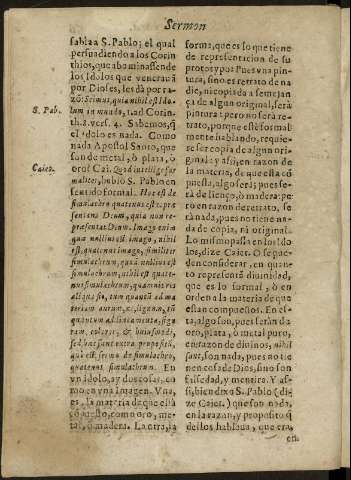 Sermon
S. Pab.
Caiet.
habla a S. Pablo; el qual
persuadiendo a los Corin
thios, que abominassende
los Idolos que venerauã
por Dioses, les dà por ra-
zõ: Scimus, quia nihil est Ido-
lum in mundo, 1. ad Corin
th. 8. vers. 4. Sabemos, q̃
el Idolo es nada. Como
nada Apostol Santo, que
son de metal, ò plata, ò
oro? Cai. Quod intellige for
maliter, hablò S. Pablo en
sentido formal. Hoc est de
simulachro quatenus est re-
præsentans Deum, quia non re-
præsentat Deum. Imago enim
qua nullius est imago, nihil
est, quatenus imago, similiter
simulachrum, quia nullius est
simulachrum, nihil est quate-
nus simulachrum, quamuis ris
aliqua sit, tum quantũ ad ma
teriam aurum, æs, lignum, tũ
quantum ad lineamenta, figu
ram, colores, & huiusmodi,
sed hæc sunt extra propositũ,
qui est, sermo de simulachro,
quatenus simulachrum. En
vn idolo, ay dos cosas, co
mo en vna Imagen. Vna,
es, la materia de que està
cõpuesto, como oro, me-
tal, ò madera. La otra, la
forma, que es lo que tiene
de representacion de su
prototypo: Pues vna pin
tura, sino es retrato de na
die, ni copiada a semejan
ça de algun original, serà
pintura: pero no serà re-
trato, porque este formal
mente hablando, requie-
re ser copia de algun ori-
ginal: y assi, en razon de
la materia, de que esta cõ
puesta, algo serà; pues se-
rà de lienço, ò madera: pe
ro en razon de retrato, se
rà nada, pues no tiene na-
da de copia, ni original.
Lo mismo passa en los Ido
los, dize Caiet. O se pue-
den considerar, en quan-
to representã diuinidad,
que es lo formal, ò en
orden a la materia de que
estan compuestos. En es-
ta, algo son, pues seràn de
oro, plata, ò metal puro,
en razon de diuinos, nihil
sunt, son nada, pues no tie
nen cosa de Dios, sino son
falsedad, y mentira. Y as-
si, bien dixo S. Pablo (di-
ze Caiet.) que son nada,
en la razon, y proposito q̃
dellos hablaua, que era
en